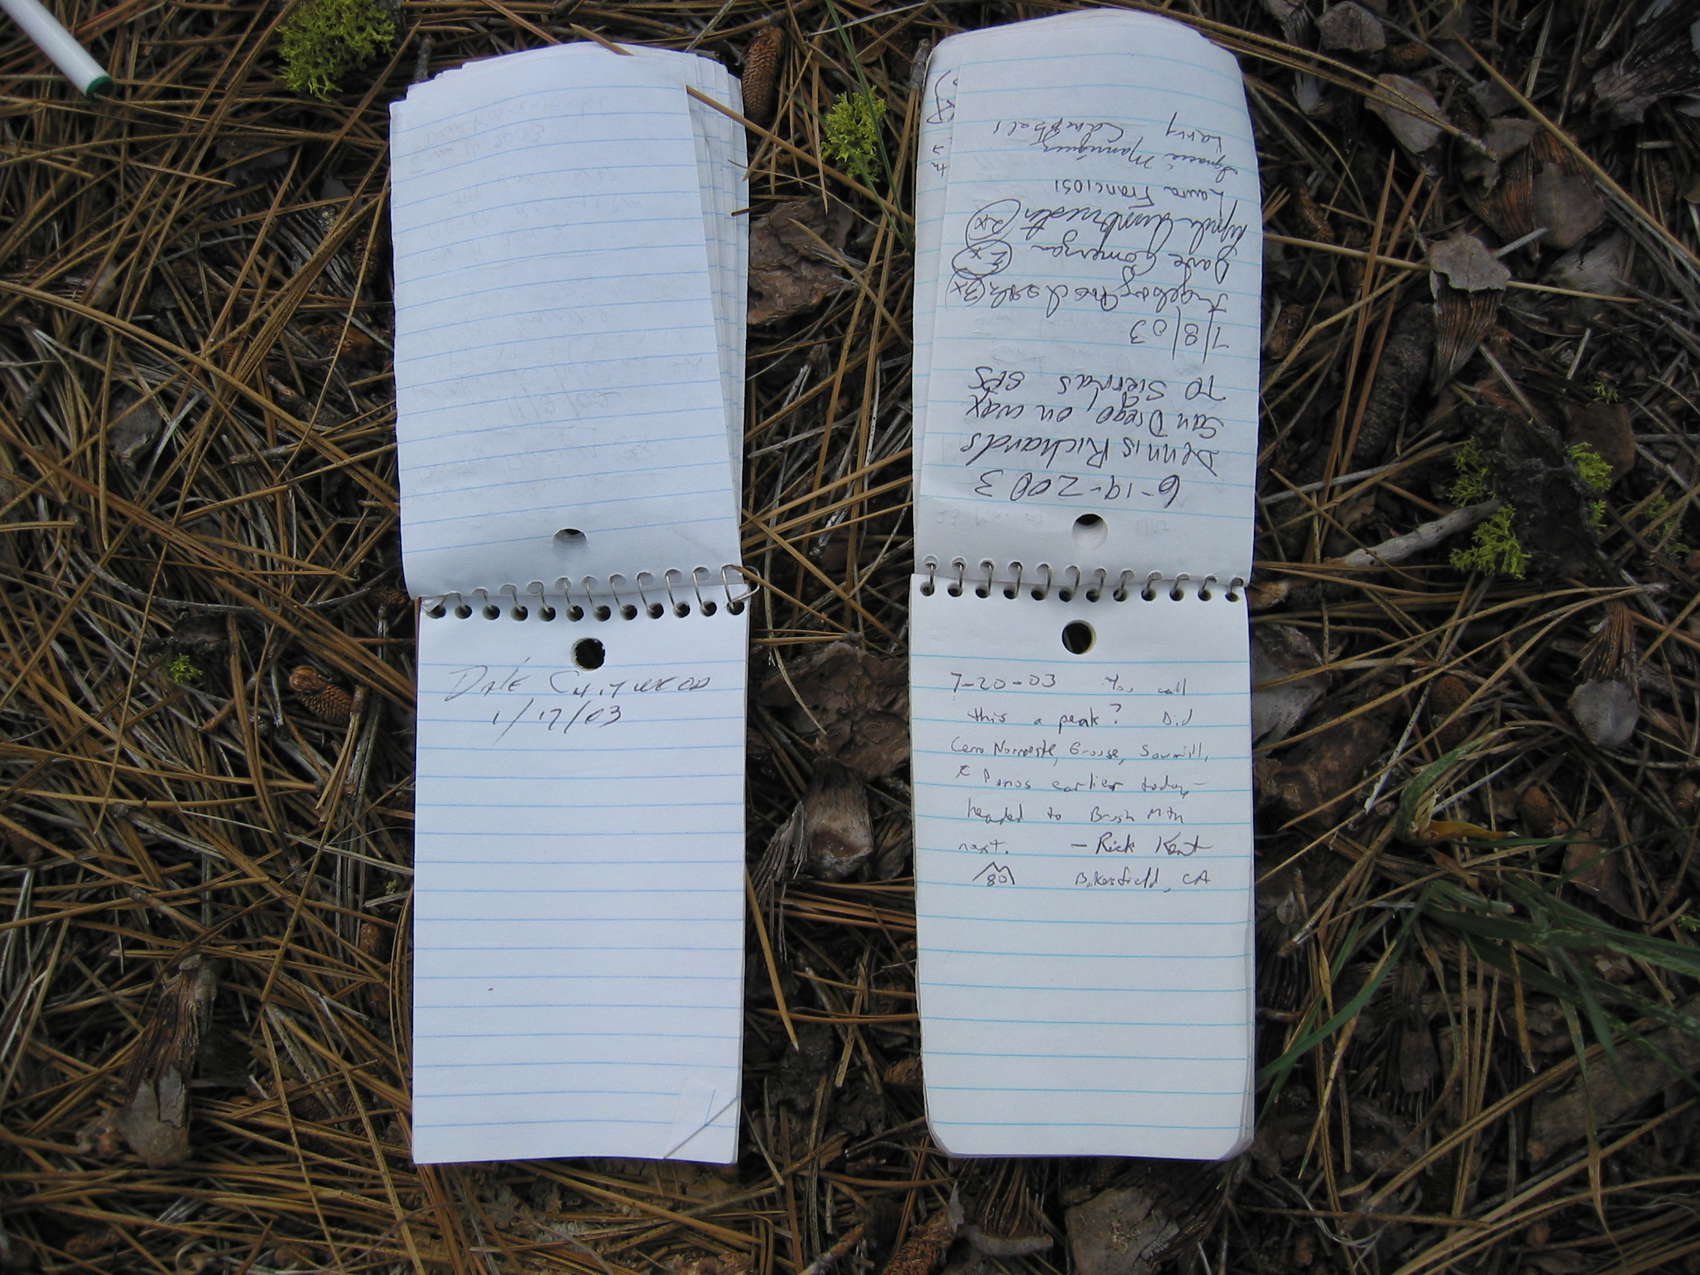 Dale Chitwood
1/17/03
6-19-2003
Dennis Richards
San Diego, on way
TO Sierras SPS
7/8/03
2x
Dave Comerzan 2x
Lynda Armbruster 2x
Laura Franciosi
Ignacia Manriquez
Larry Campbell
7-20-03 You call
this a peak? Did
Cerro Noroeste, Grouse, Sawmill,
& Pinos earlier today -
headed to Brush Mtn
next. - Rick Kent
80 Bakersfield, CA